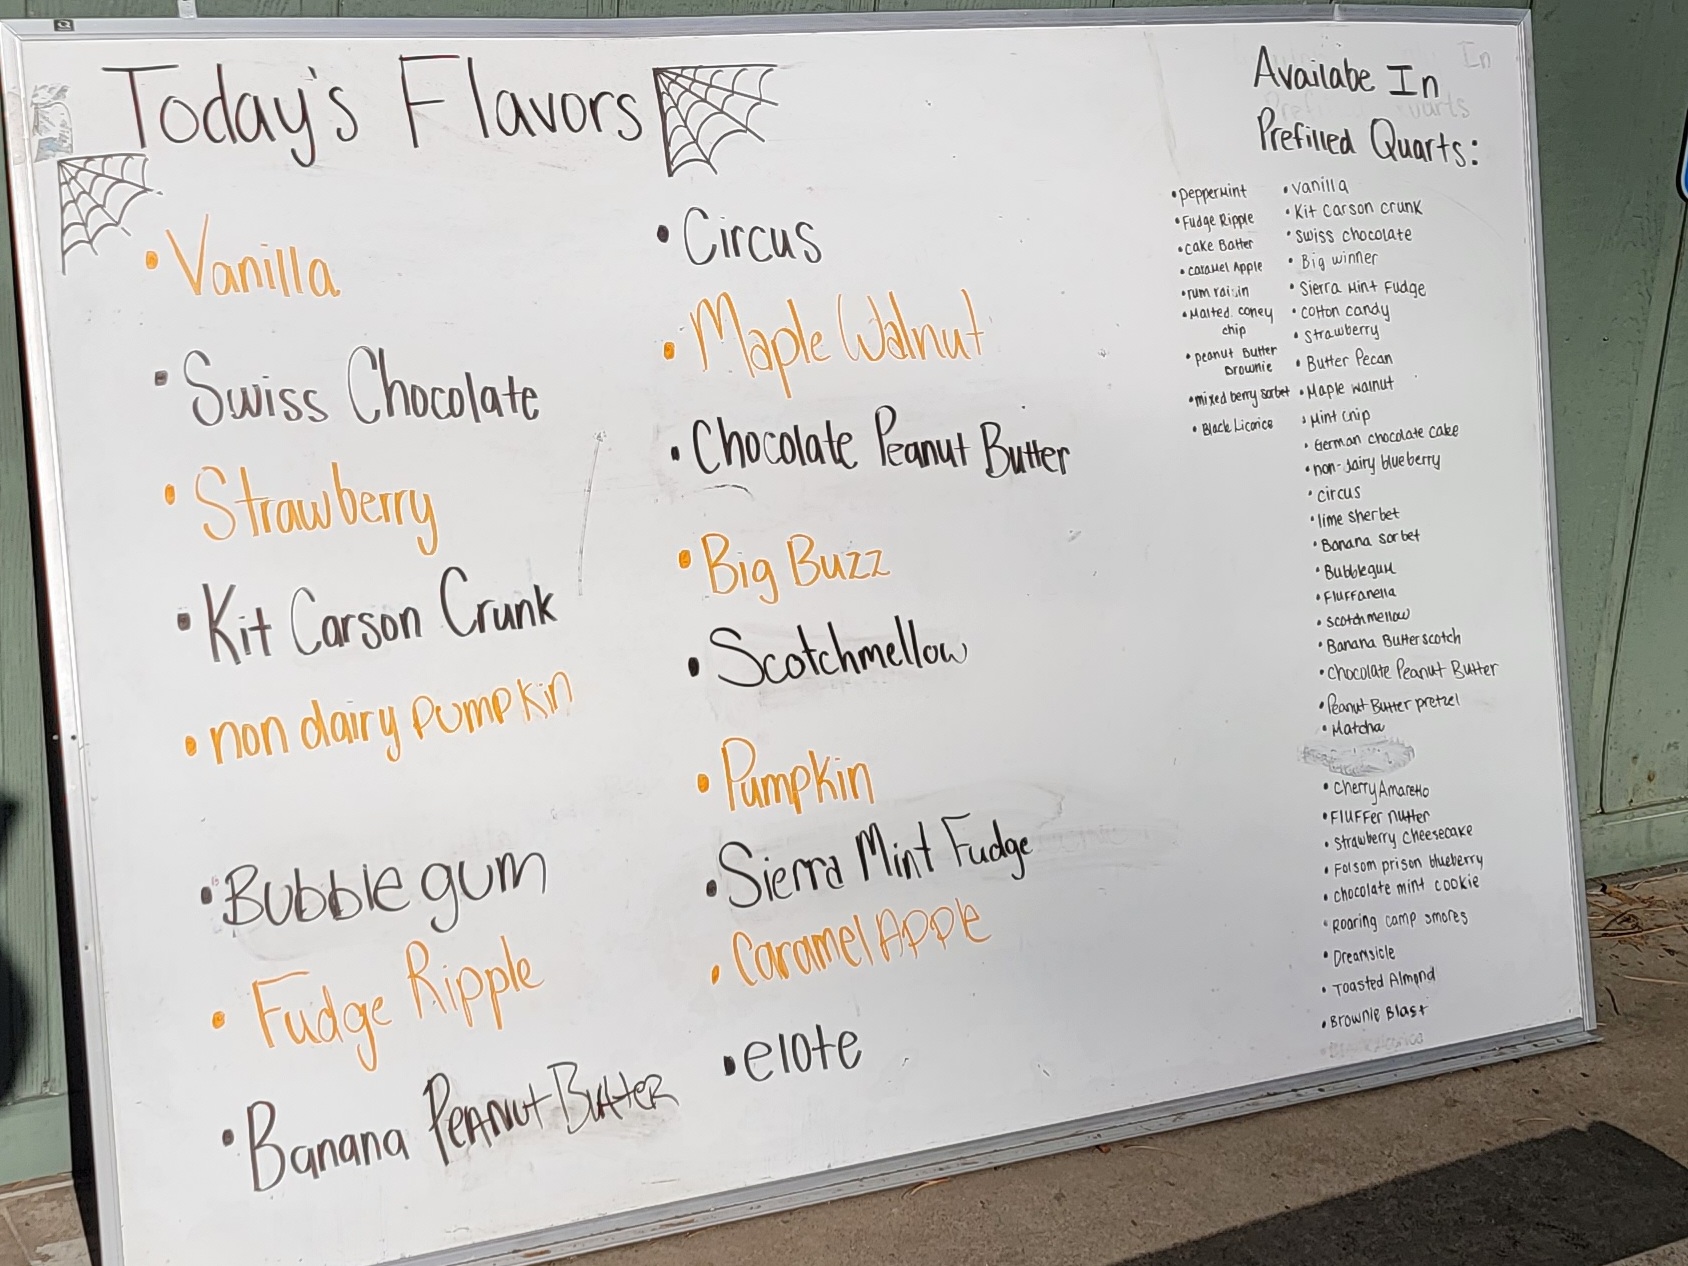 Today's Flavors
• Vanilla
• Swiss Chocolate
• Strawberry
• Kit Carson Crunk
• non dairy pumpkin
• Bubble gum
• Fudge Ripple
• Banana Peanut Butter
• Circus
• Maple Walnut
• Chocolate Peanut Butter
• Big Buzz
• Scotchmellow
• Pumpkin
• Sierra Mint Fudge
• Caramel Apple
• elote
Availabe In
Prefilled Quarts:
• peppermint
• Fudge Ripple
• cake Batter
• caramel Apple
• rum raisin
• Malted coney
chip
• peanut Butter
Brownie
• mixed berry sorbet
• Black Licorice
• vanilla
• Kit Carson crunk
• Swiss chocolate
• Big winner
• Sierra Mint Fudge
• cotton candy
• Strawberry
• Butter Pecan
• Maple walnut
• Mint chip
• German chocolate cake
• non-dairy blueberry
• circus
• lime sherbet
• Banana sorbet
• Bubblegum
• Fluffanella
• scotchmellow
• Banana Butterscotch
• Chocolate Peanut Butter
• Peanut Butter pretzel
• Matcha
• Cherry Amaretto
• Fluffer nutter
• Strawberry cheesecake
• Folsom prison blueberry
• chocolate mint cookie
• Roaring camp smores
• Dreamsicle
• Toasted Almond
• Brownie Blast